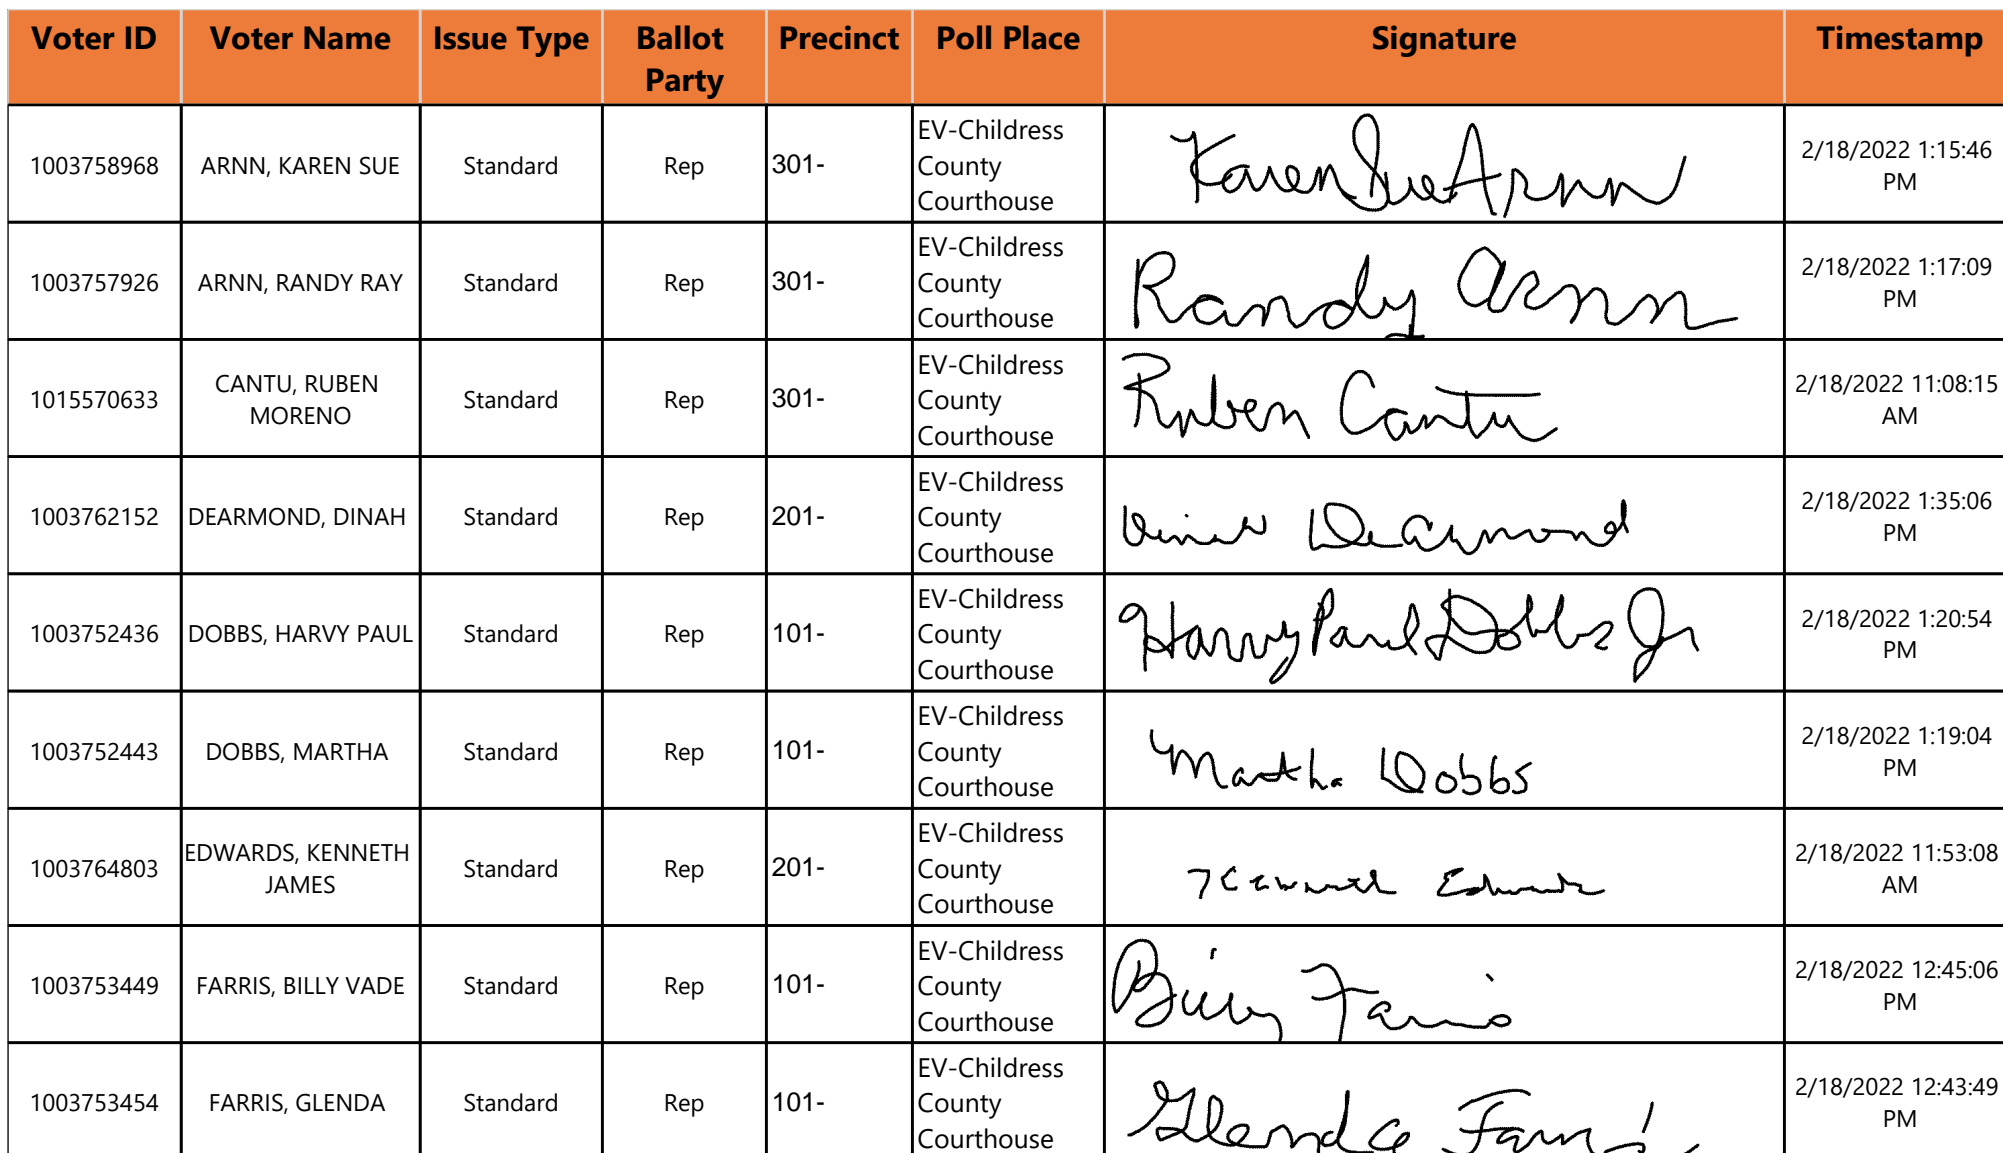 Voter ID Voter Name Issue Type Ballot Party Precinct Poll Place Signature Timestamp
1003758968 ARNN, KAREN SUE Standard Rep 301- EV-Childress County Courthouse Karen Sue Arnn 2/18/2022 1:15:46 PM
1003757926 ARNN, RANDY RAY Standard Rep 301- EV-Childress County Courthouse Randy Arnn 2/18/2022 1:17:09 PM
1015570633 CANTU, RUBEN MORENO Standard Rep 301- EV-Childress County Courthouse Ruben Cantu 2/18/2022 11:08:15 AM
1003762152 DEARMOND, DINAH Standard Rep 201- EV-Childress County Courthouse Dinah DeArmond 2/18/2022 1:35:06 PM
1003752436 DOBBS, HARVY PAUL Standard Rep 101- EV-Childress County Courthouse Harvy Paul Dobbs Jr 2/18/2022 1:20:54 PM
1003752443 DOBBS, MARTHA Standard Rep 101- EV-Childress County Courthouse Martha Dobbs 2/18/2022 1:19:04 PM
1003764803 EDWARDS, KENNETH JAMES Standard Rep 201- EV-Childress County Courthouse Kenneth Edwards 2/18/2022 11:53:08 AM
1003753449 FARRIS, BILLY VADE Standard Rep 101- EV-Childress County Courthouse Billy Farris 2/18/2022 12:45:06 PM
1003753454 FARRIS, GLENDA Standard Rep 101- EV-Childress County Courthouse Glenda Farris 2/18/2022 12:43:49 PM